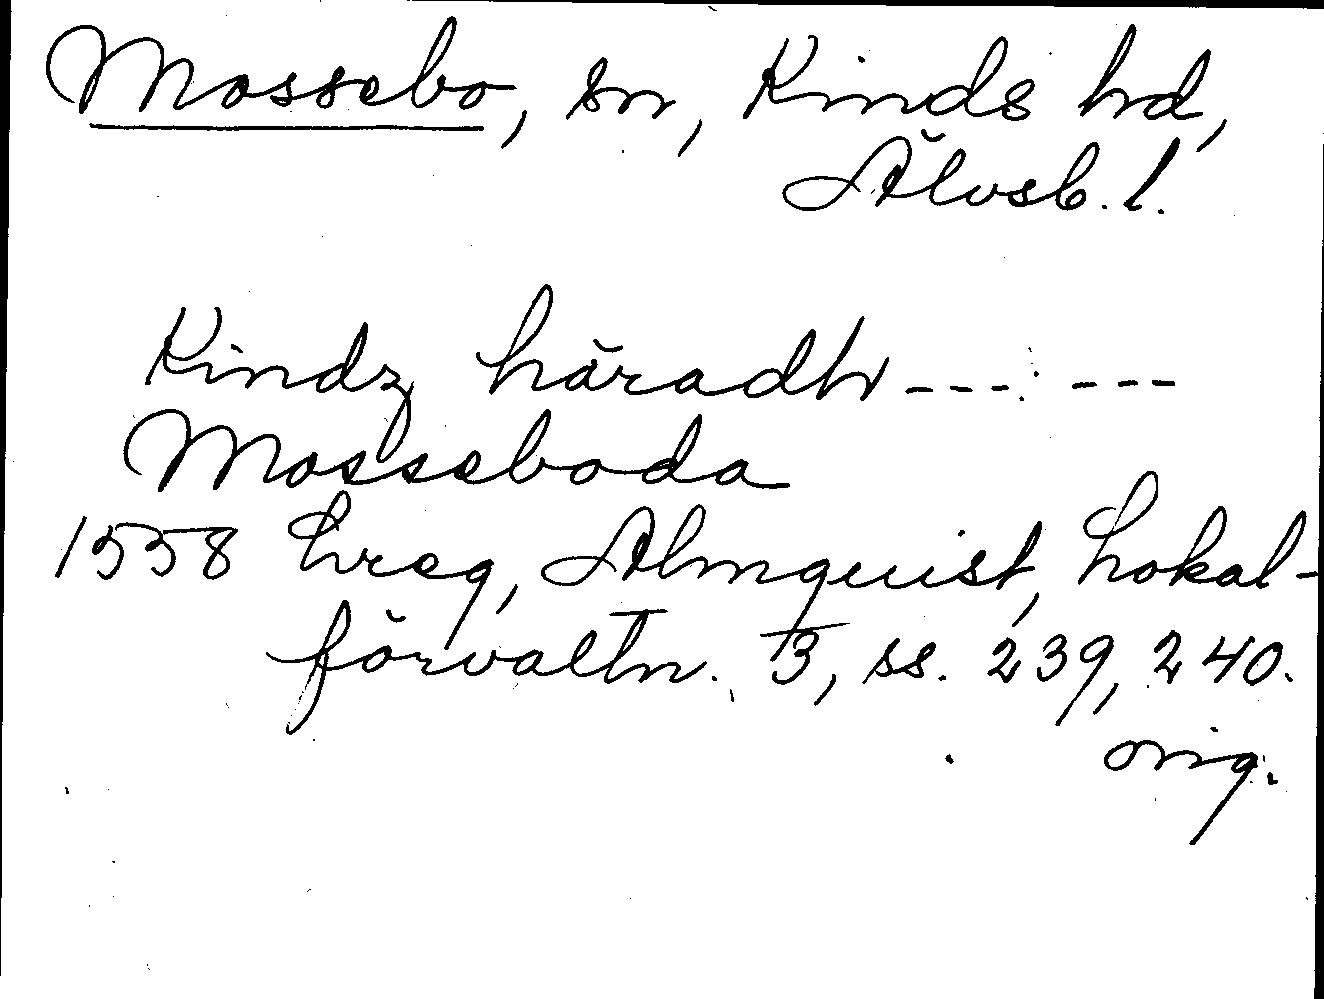 Mossebo, sn, Kinds hd,
Älvsb. l.
Kindz häradh --- ---
Mosseboda
1558 Lreg, Almquist, Lokal-
förvaltn. 3, ss. 239, 240.
orig.